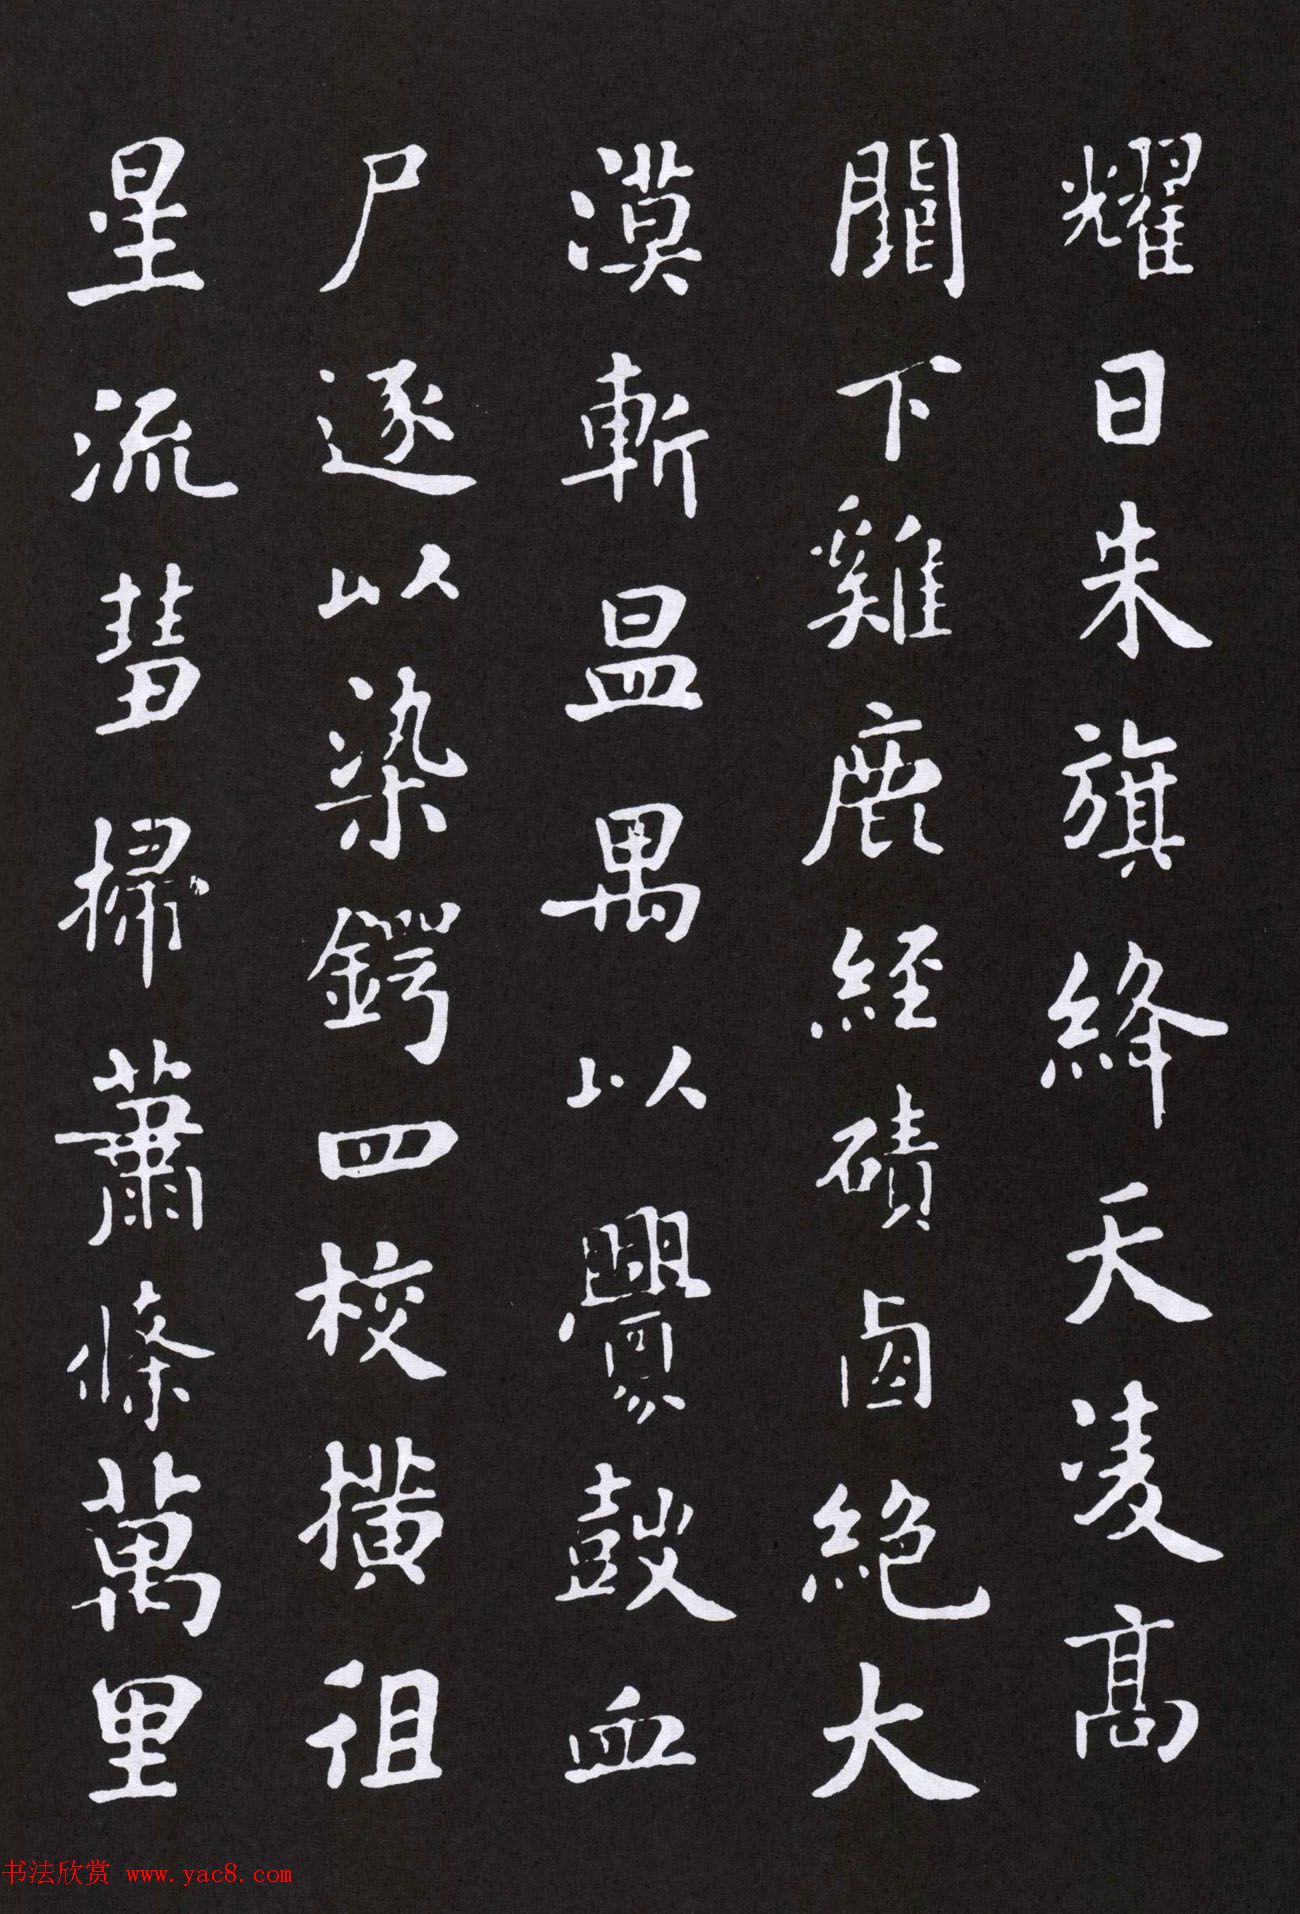 耀日朱旗絳天凌高
闕下雞鹿經磧鹵絕大
漠斬溫禺以釁鼓血
尸逐以染鍔四校橫徂
星流彗掃蕭條萬里
书法欣赏 www.yac8.com